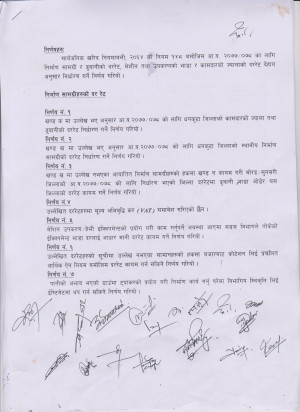 निर्णयहरु
सार्वजनिक खरिद नियमावली, २०६४ को नियम १४४ बमोजिम आ.व. २०७७।०७८ का लागि
निर्माण सामाग्री र ढुवानीको दररेट, मेशीन तथा उपकरणको भाडा र कामदारको ज्यालाको दररेट देहाय
अनुसार निर्धारण गर्ने निर्णय गरियो ।
निर्माण सामाग्रीहरुको दर रेट
निर्णय नं. १
खण्ड क मा उल्लेख भए अनुसार आ.व.२०७७।०७८ को लागि धनकुटा जिल्लाको कामदारको ज्याला तथा
ढुवानीको दररेट निर्धारण गर्ने निर्णय गरियो ।
निर्णय नं. २
खण्ड ख मा उल्लेख भए अनुसार आ.व.२०७७।०७८ को लागि धनकुटा जिल्लाको स्थानीय निर्माण
सामाग्रीको दररेट निर्धारण गर्ने निर्णय गरियो ।
निर्णय नं. ३
खण्ड ख मा उल्लेख नभएका आयातित निर्माण सामाग्रीहरुको हकमा खण्ड ग कायम गरी मोरङ-सुनसरी
जिल्लाको आ.व.२०७७।०७८ को लागि निर्धारण भएको जिल्ला दररेटमा ढुवानी भाडा जोडेर यस
जिल्लाको दररेट कायम गर्ने निर्णय गरियो ।
निर्णय नं. ४
उल्लेखित दररेटहरुमा मूल्य अभिवृद्धि कर (VAT) समावेश गरिएको छैन ।
निर्णय नं. ५
मेशिन उपकरण हेभी इक्विपमेन्टको प्रयोग गरी काम गर्नुपर्ने अवस्था आएमा सडक विभागले तोकेको
इक्विपमेन्ट भाडा दरलाई आधार मानी दररेट कायम गर्ने निर्णय गरियो ।
निर्णय नं. ६
उल्लेखित दररेटहरुको सूचीमा उल्लेख नभएका सामानहरुको हकमा बजारबाट कोटेशन लिई प्रचलित
आर्थिक ऐन नियम बमोजिम दररेट कायम गर्न सकिने निर्णय गरियो ।
निर्णय नं. ७
पानीको अभाव भएको ठाउँमा ट्यांकरको प्रयोग गरी निर्माण कार्य गर्नु परेमा विभागिय स्विकृति लिई
ईष्टिमेटमा थप गर्न सकिने निर्णय गरियो ।